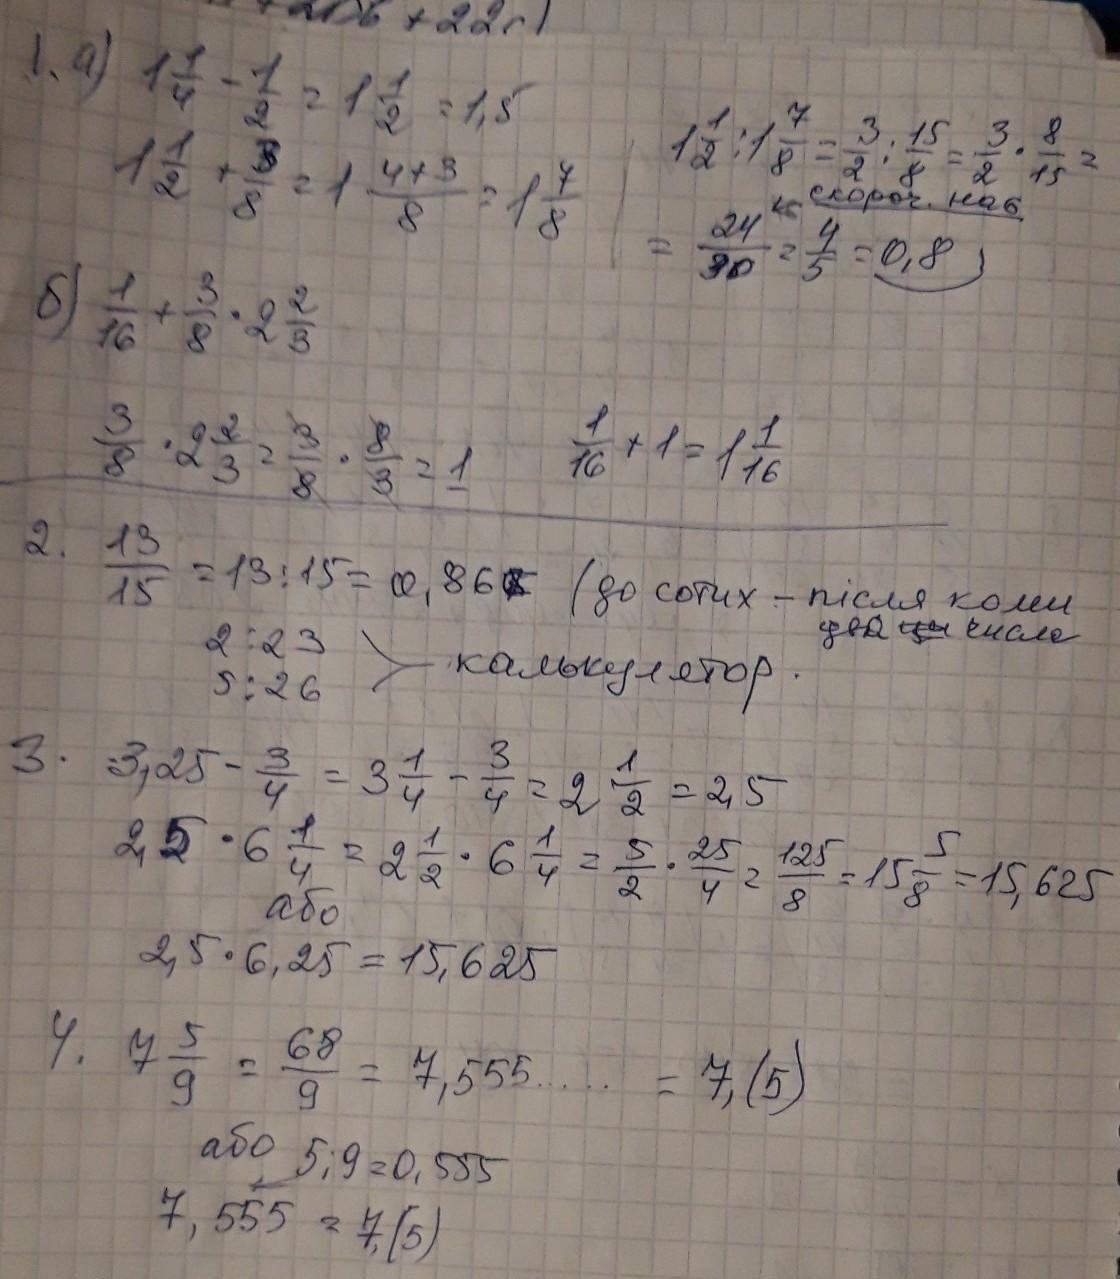 1. а) 1 1/4 - 1/2 = 1 1/2 = 1,5
1 1/2 + 3/8 = 1 4+3/8 = 1 7/8
1 1/2 : 1 7/8 = 3/2 : 15/8 = 3/2 · 8/15 =
скороч. на 6
= 24/30 = 4/5 = 0,8
б) 1/16 + 3/8 · 2 2/3
3/8 · 2 2/3 = 3/8 · 8/3 = 1
1/16 + 1 = 1 1/16
2. 13/15 = 13 : 15 = 0,86 (до сотих - після коми
два числа
2 : 23
5 : 26
калькулятор.
3. 3,25 - 3/4 = 3 1/4 - 3/4 = 2 1/2 = 2,5
2,5 · 6 1/4 = 2 1/2 · 6 1/4 = 5/2 · 25/4 = 125/8 = 15 5/8 = 15,625
або
2,5 · 6,25 = 15,625
4. 7 5/9 = 68/9 = 7,555..... = 7,(5)
або 5:9=0,555
7,555 = 7,(5)